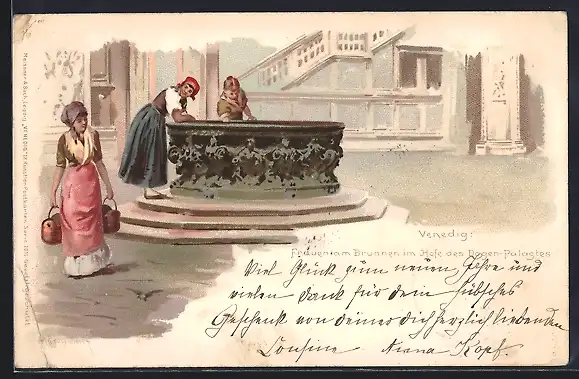 Venedig:
Frauen am Brunnen im Hofe des Dogen-Palastes
Viel Glück zum neuen Jahre und
vielen Dank für dein hübsches
Geschenk von deiner dich herzlich liebenden
Cousine Anna Kopf.